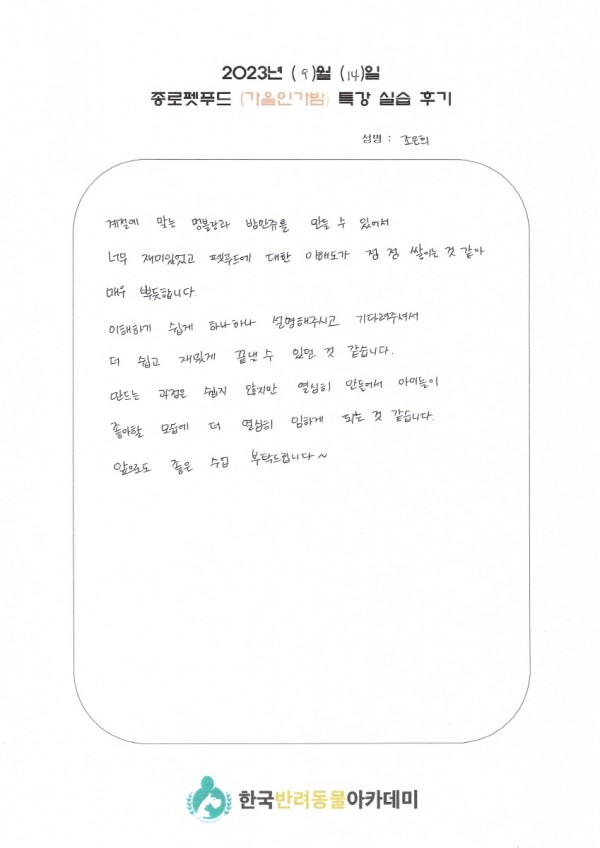 2023년 ( 9 )월 ( 14 )일
종로펫푸드 (가을인가밤) 특강 실습 후기
성명 : 조은희
계절에 맞는 멍블랑과 밤만쥬를 만들 수 있어서
너무 재미있었고 펫푸드에 대한 이해도가 점점 쌓이는 것 같아
매우 뿌듯합니다.
이해하기 쉽게 하나하나 설명해주시고 기다려주셔서
더 쉽고 재밌게 끝낼 수 있던 것 같습니다.
만드는 과정은 쉽지 않지만 열심히 만들어서 아이들이
좋아할 모습에 더 열심히 임하게 되는 것 같습니다.
앞으로도 좋은 수업 부탁드립니다~
한국반려동물아카데미